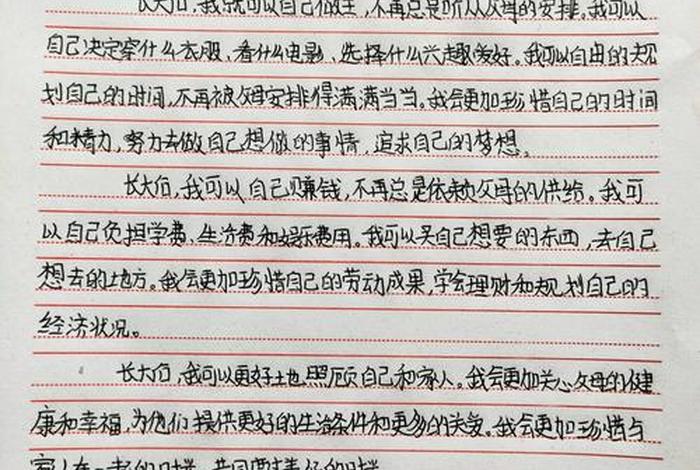 长大后,我就可以自己做主,不再总是听从父母的安排。我可以
自己决定穿什么衣服、看什么电影、选择什么兴趣爱好。我可以自由的规
划自己的时间,不再被父母安排得满满当当。我会更加珍惜自己的时间
和精力,努力去做自己想做的事情,追求自己的梦想。
长大后,我可以自己赚钱,不再总是依赖父母的供给。我可
以自己负担学费、生活费和娱乐费用。我可以买自己想要的东西,去自己
想去的地方。我会更加珍惜自己的劳动成果,学会理财和规划自己的
经济状况。
长大后,我可以更好地照顾自己和家人。我会更加关心父母的健
康和幸福,为他们提供更好的生活条件和更多的关爱。我会更加珍惜与
家人在一起的时光,共同